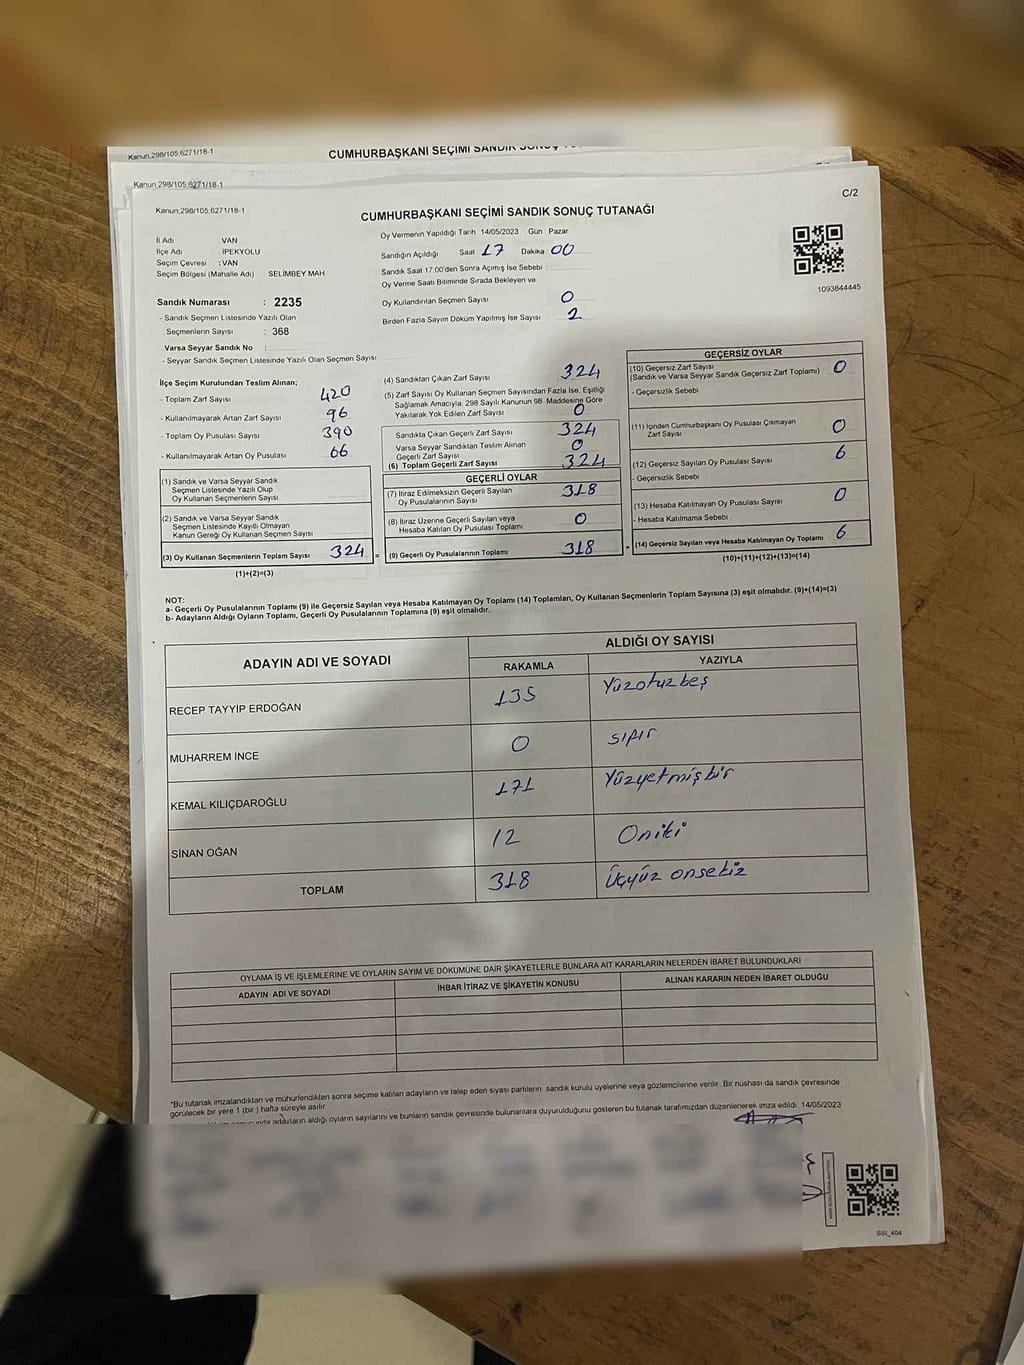 Kanun;298/105;6271/18-1
CUMHURBAŞKANI SEÇİMİ SANDIK
Kanun;298/105;6271/18-1
Kanun;298/105;6271/18-1
C/2
CUMHURBAŞKANI SEÇİMİ SANDIK SONUÇ TUTANAĞI
İl Adı VAN
İlçe Adı : İPEKYOLU
Seçim Çevresi : VAN
Seçim Bölgesi (Mahalle Adı) SELİMBEY MAH
Oy Vermenin Yapıldığı Tarih 14/05/2023 Gün : Pazar
Sandığın Açıldığı Saat 17 Dakika 00
Sandık Saat 17:00'den Sonra Açılmış İse Sebebi
Oy Verme Saati Bitiminde Sırada Bekleyen ve
Oy Kullandırılan Seçmen Sayısı 0
Birden Fazla Sayım Döküm Yapılmış İse Sayısı 2
1093844445
Sandık Numarası : 2235
- Sandık Seçmen Listesinde Yazılı Olan
Seçmenlerin Sayısı : 368
Varsa Seyyar Sandık No :
- Seyyar Sandık Seçmen Listesinde Yazılı Olan Seçmen Sayısı
İlçe Seçim Kurulundan Teslim Alınan;
- Toplam Zarf Sayısı 420
- Kullanılmayarak Artan Zarf Sayısı 96
- Toplam Oy Pusulası Sayısı 390
- Kullanılmayarak Artan Oy Pusulası 66
(1) Sandık ve Varsa Seyyar Sandık
Seçmen Listesinde Yazılı Olup
Oy Kullanan Seçmenlerin Sayısı
(2) Sandık ve Varsa Seyyar Sandık
Seçmen Listesinde Kayıtlı Olmayan
Kanun Gereği Oy Kullanan Seçmen Sayısı
(3) Oy Kullanan Seçmenlerin Toplam Sayısı 324
(1)+(2)=(3)
(4) Sandıktan Çıkan Zarf Sayısı 324
(5) Zarf Sayısı Oy Kullanan Seçmen Sayısından Fazla İse, Eşitliği
Sağlamak Amacıyla; 298 Sayılı Kanunun 98. Maddesine Göre
Yakılarak Yok Edilen Zarf Sayısı 0
Sandıkta Çıkan Geçerli Zarf Sayısı 324
Varsa Seyyar Sandıktan Teslim Alınan
Geçerli Zarf Sayısı 0
(6) Toplam Geçerli Zarf Sayısı 324
GEÇERLİ OYLAR
(7) İtiraz Edilmeksizin Geçerli Sayılan
Oy Pusulalarının Sayısı 318
(8) İtiraz Üzerine Geçerli Sayılan veya
Hesaba Katılan Oy Pusulası Toplamı 0
= (9) Geçerli Oy Pusulalarının Toplamı 318
GEÇERSİZ OYLAR
(10) Geçersiz Zarf Sayısı
(Sandık ve Varsa Seyyar Sandık Geçersiz Zarf Toplamı) 0
- Geçersizlik Sebebi
(11) İçinden Cumhurbaşkanı Oy Pusulası Çıkmayan
Zarf Sayısı 0
(12) Geçersiz Sayılan Oy Pusulası Sayısı 6
- Geçersizlik Sebebi
(13) Hesaba Katılmayan Oy Pusulası Sayısı 0
- Hesaba Katılmama Sebebi
+ (14) Geçersiz Sayılan veya Hesaba Katılmayan Oy Toplamı 6
(10)+(11)+(12)+(13)=(14)
NOT:
a- Geçerli Oy Pusulalarının Toplamı (9) ile Geçersiz Sayılan veya Hesaba Katılmayan Oy Toplamı (14) Toplamları, Oy Kullanan Seçmenlerin Toplam Sayısına (3) eşit olmalıdır. (9)+(14)=(3)
b- Adayların Aldığı Oyların Toplamı, Geçerli Oy Pusulalarının Toplamına (9) eşit olmalıdır.
ADAYIN ADI VE SOYADI
ALDIĞI OY SAYISI
RAKAMLA YAZIYLA
RECEP TAYYİP ERDOĞAN 135 Yüzotuzbeş
MUHARREM İNCE 0 sıfır
KEMAL KILIÇDAROĞLU 171 Yüzyetmişbir
SİNAN OĞAN 12 Oniki
TOPLAM 318 Üçyüz onsekiz
OYLAMA İŞ VE İŞLEMLERİNE VE OYLARIN SAYIM VE DÖKÜMÜNE DAİR ŞİKAYETLERLE BUNLARA AİT KARARLARIN NELERDEN İBARET BULUNDUKLARI
ADAYIN ADI VE SOYADI İHBAR İTİRAZ VE ŞİKAYETİN KONUSU ALINAN KARARIN NEDEN İBARET OLDUĞU
*Bu tutanak imzalandıktan ve mühürlendikten sonra seçime katılan adayların ve talep eden siyasi partilerin sandık kurulu üyelerine veya gözlemcilerine verilir. Bir nüshası da sandık çevresinde
görülecek bir yere 1 (bir ) hafta süreyle asılır
adayların aldığı oyların sayılarını ve bunların sandık çevresinde bulunanlara duyurulduğunu gösteren bu tutanak tarafımızdan düzenlenerek imza edildi. 14/05/2023
SSI_404